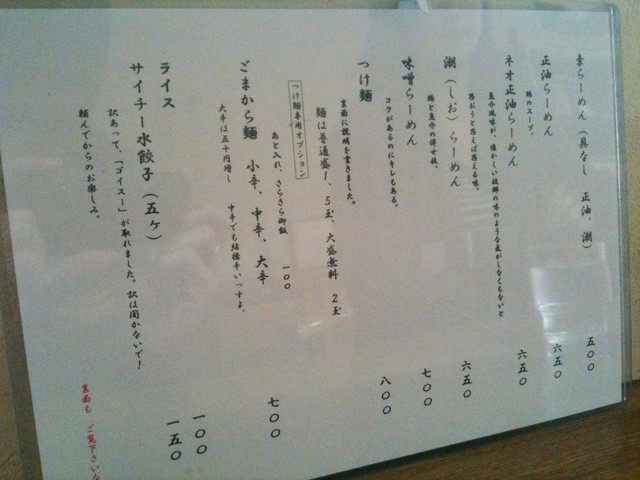 素らーめん（具なし 正油、潮） 五〇〇
正油らーめん 六五〇
鶏のスープ。
ネオ正油らーめん 六五〇
魚介風味が、懐かしい故郷の味のような気がしなくもないと
思おうと思えば思える味。
潮（しお）らーめん 六五〇
鶏と魚介の併せ技。
味噌らーめん 七〇〇
コクがあるのにキレもある。
つけ麺 八〇〇
裏面に説明を書きました。
麺は普通盛1、5玉、大盛無料 2玉
つけ麺専用オプション
あと入れ、さらさら御飯 一〇〇
ごまから麺 小辛、中辛、大辛 七〇〇
大辛は五十円増し 中辛でも結構辛いっすよ、
ライス 一〇〇
サイチー水餃子（五ヶ） 一五〇
訳あって、「ゴイスー」が取れました。訳は聞かないで！
頼んでからのお楽しみ。
裏面も ご覧下さいな